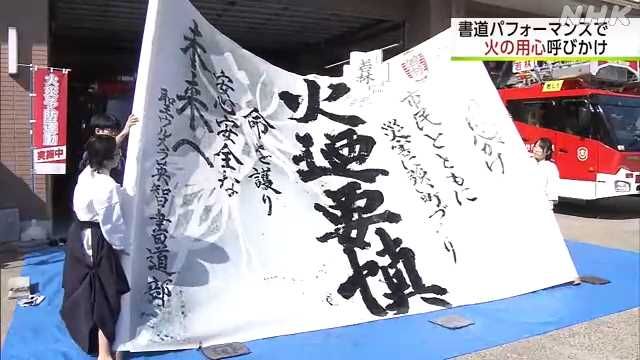 NHK
書道パフォーマンスで
火の用心呼びかけ
火災予防運動
実施中
若林
市民とともに
災害に強い町づくり
火廼要慎
命を護り
安心安全な
未来へ
聖ウルスラ英智書道部